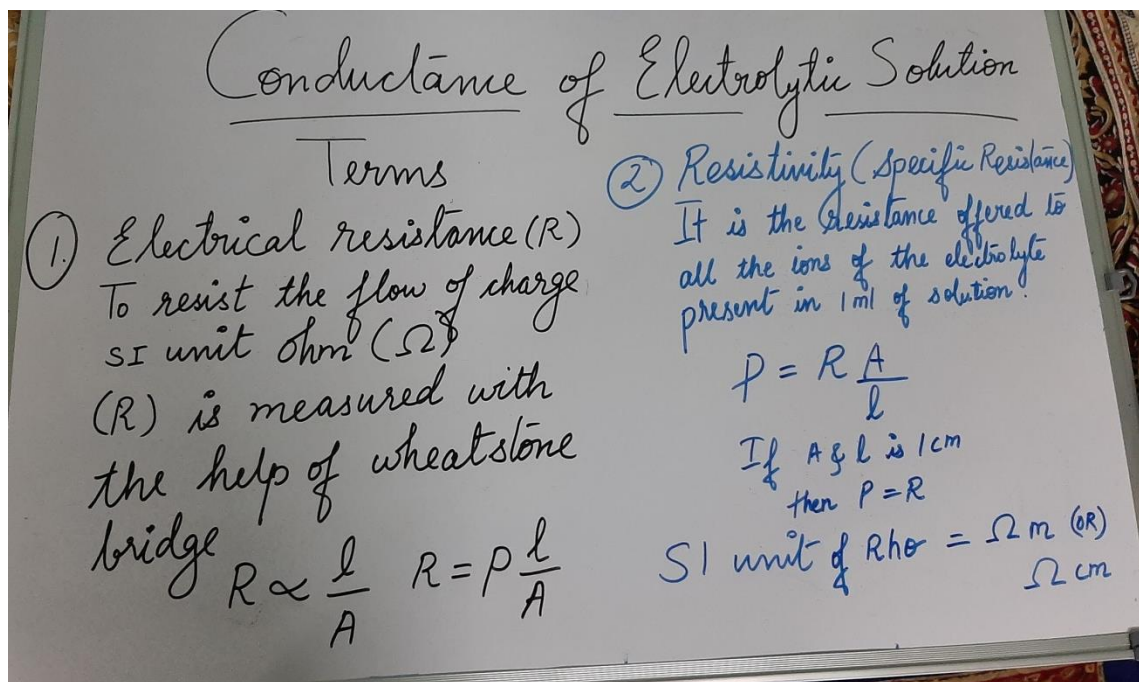 Conductance of Electrolytic Solution
Terms
1. Electrical resistance (R)
To resist the flow of charge
SI unit ohm (Ω)
(R) is measured with
the help of wheatstone
bridge
R ∝ l/A R = ρ l/A
2 Resistivity (Specific Resistance)
It is the resistance offered to
all the ions of the electrolyte
present in 1ml of solution.
ρ = R A/l
If A & l is 1cm
then ρ = R
SI unit of Rho = Ω m (OR)
Ω cm